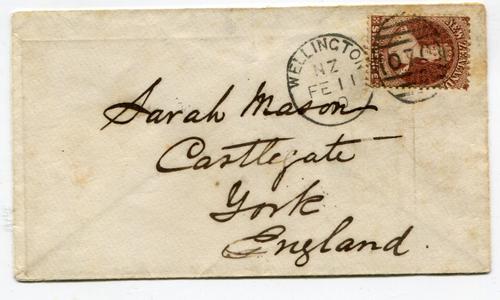 WELLINGTON
NZ
FE 11
070
NEW ZEALAND
Sarah Mason
Castlegate
York
England.